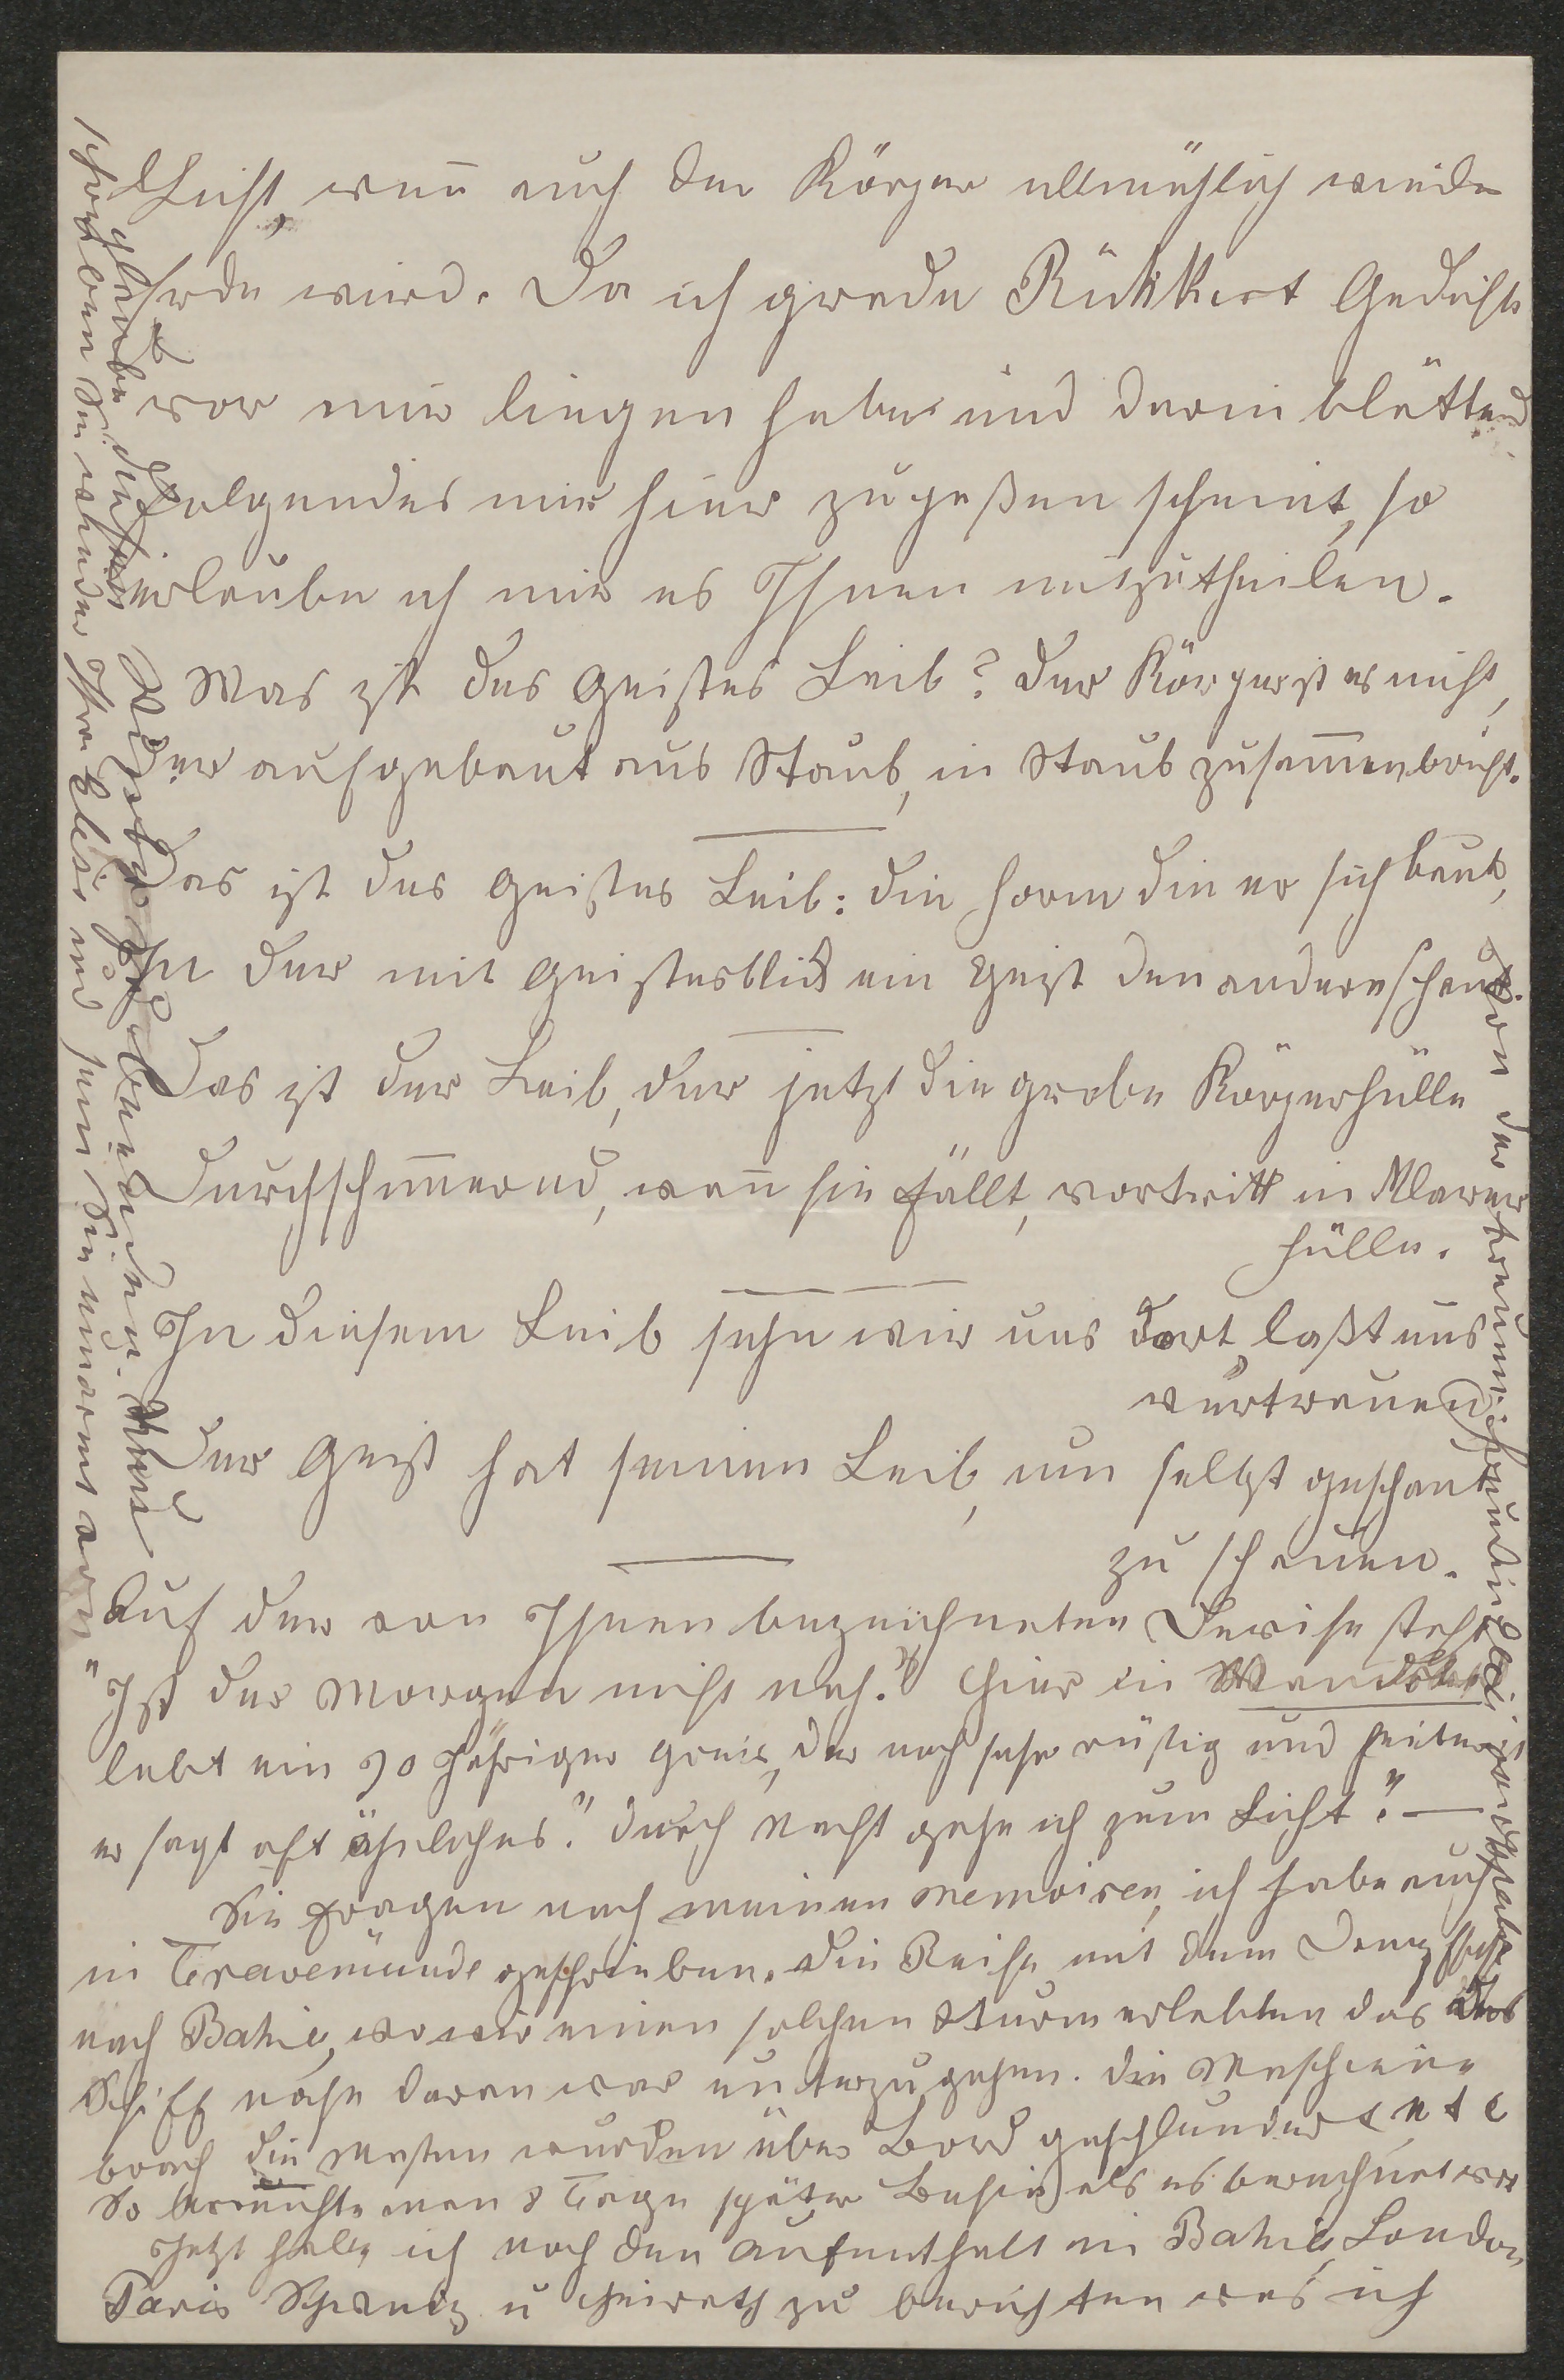 Licht, wen̄ auch der Körper allmählich wieder
Erde wird. Da ich grade Rükkert Gedichte
vor mir liegen habe und darin blätternd
Folgendes mir hier zupaßen scheint, so
erlaube ich mir es Ihnen mitzutheilen.
Was ist des Geistes Leib? der Körper ist es nicht,
Der aufgebaut aus Staub, in Staub zusam̄enbricht.
Das ist des Geistes Leib: die Form die er sich baut,
In der mit Geistesblick ein Geist den andern schaut.
Das ist der Leib, der jetzt die grobe Körperhülle
Durchschim̄ernd, wan̄ sie fällt, vortritt in klarer
Fülle.
In diesem Leib sehn wir uns dort, laßt uns
vertrauen,
Der Geist hat seinen Leib, um selbst geschaut
zu schauen.
Auf der von Ihnen bezeichneten Devise steht
"Ist der Morgen nicht nah?" Hier in
lebt ein 90 jähriger Greis, der noch sehr rüstig und heiter ist
er sagt oft ähnliches "durch Nacht gehe ich zum Licht". —
Sie fragen nach meinen Memoiren, ich habe auch
in Travemünde geschrieben. Die Reise mit dem Dampfschiff
nach Bahia, wo wir einen solchen Sturm erlebten das das
Schiff nahe daran war unterzugehen. Die Maschine
brach die Masten wurden über Bord geschleudert etc
So erreichte man 8 Tage später Bahia als es berechnet war
Jetzt habe ich noch den Aufenthalt in Bahia, London,
Paris Schweiz u Heirath zu berichten was ich
glaube
schreiben Sie wieder Ihre Elise und seien Sie umarmt von
Von der treuen Freundin